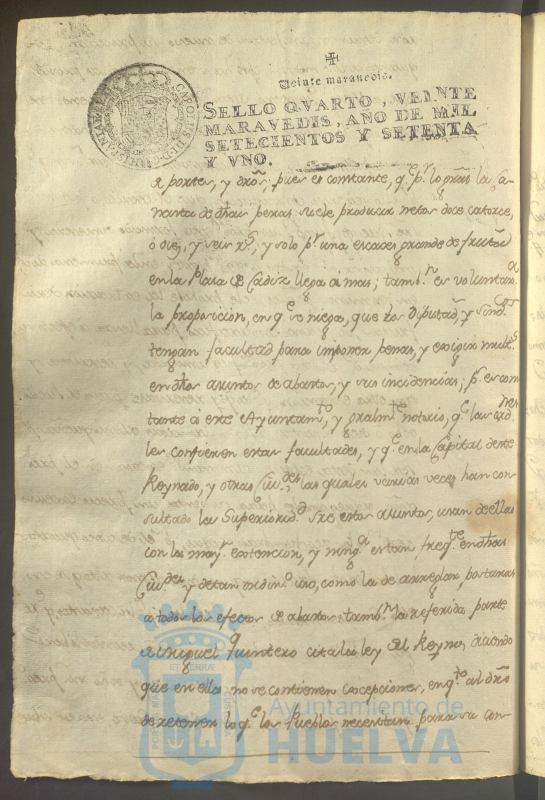 CAROLUS III D G HISPANIAR
Veinte maravedis.
SELLO QVARTO, VEINTE
MARAVEDIS, AÑO DE MIL
SETECIENTOS Y SETENTA
Y VNO.
portes, y dros, pues es constante, q.e p.r lo gral la Ca-
nasta de dhas peras suele producir netos doce catorce,
ó diez, y seis r.s, y solo p.r una escases grande de frutas
en la Plaza de Cadiz llega á mas; tamb.n es voluntaria
la proposicion, en q.e se niega, que los Diputad.s y Sind.cos
tengan facultad para imponer penas, y exigir mult.s
en dhos asuntos de abastos, y sus incidencias; p.s es cons
tante á este Ayuntam.to, y gralm.te notorio, q.e las
les confieren estas facultades, y q.e en la Capital deste
Reynado, y otras Ciu.des las quales varias veces han con
sultado la Superiorid.d sre estos asuntos, usan de ellas
con la may.r extencion, y ning.a están freq.te en dhas
Ciu.des y de tan ordin.o uso, como la de arreglar posturas
a todos los efectos de abastos; tamb.n la referida parte
de Miguel Quintero cita la ley del Reyno, diciendo
que en ella no se contienen concepciones, en q.to al dro
de retener lo q.e los Pueblos necesitan para su con-
PORTUS MARIS ET TERRÆ CUSTODIA
Ayuntamiento de
HUELVA